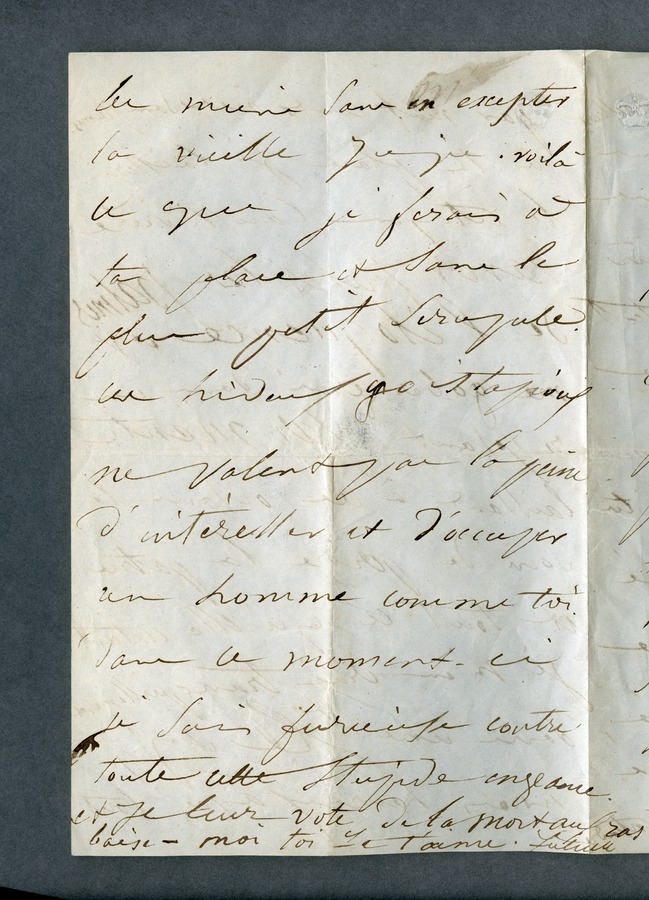 la vieille
voilà
ce que je ferais à
ta place et sans le
plus petit scrupule.
ces hideux
ne valent pas la peine
d'intéresser et d'occuper
un homme comme toi.
dans ce moment-ci
je suis furieuse contre
toute cette stupide engeance.
et je leur vote de la mort aux ras
baise-moi toi je t'aime. Juliette